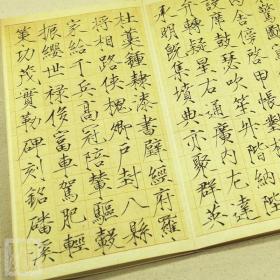 舍傍啓甲帳
鼓瑟吹笙升階納陛
弁轉疑星右通廣內左達
承明既集墳典亦聚群英
杜藁鍾隸漆書壁經府羅
將相路俠槐卿戶封八縣
家給千兵高冠陪輦驅轂
振纓世祿侈富車駕肥輕
策功茂實勒碑刻銘磻溪